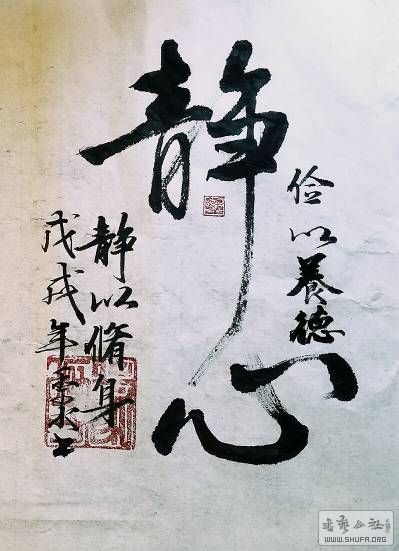 静心
俭以養德
静以脩身
戊戌年
书艺公社
WWW.SHUFA.ORG